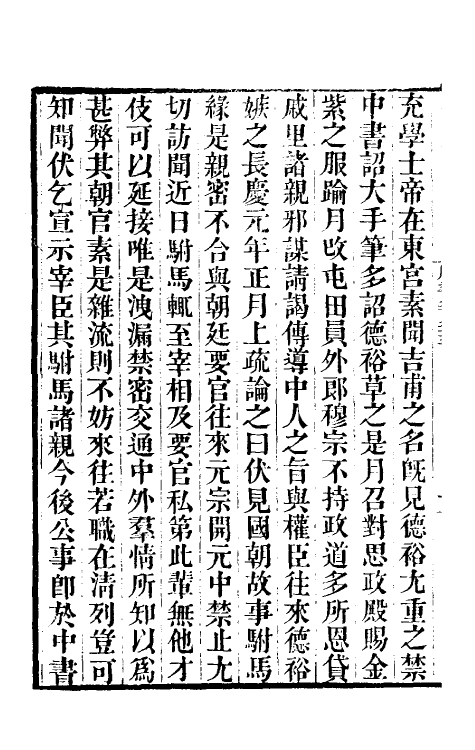 充學士帝在東宮素聞吉甫之名旣見德裕尤重之禁
中書詔大手筆多詔德裕草之是月召對思政殿賜金
紫之服踰月改屯田員外郎穆宗不持政道多所恩貸
戚里諸親邪謀請謁傳導中人之旨與權臣往來德裕
嫉之長慶元年正月上疏論之曰伏見國朝故事駙馬
緣是親密不合與朝廷要官往來元宗開元中禁止尤
切訪聞近日駙馬輒至宰相及要官私第此輩無他才
伎可以延接唯是洩漏禁密交通中外羣情所知以爲
甚弊其朝官素是雜流則不妨來往若職在清列豈可
知聞伏乞宣示宰臣其駙馬諸親今後公事卽於中書